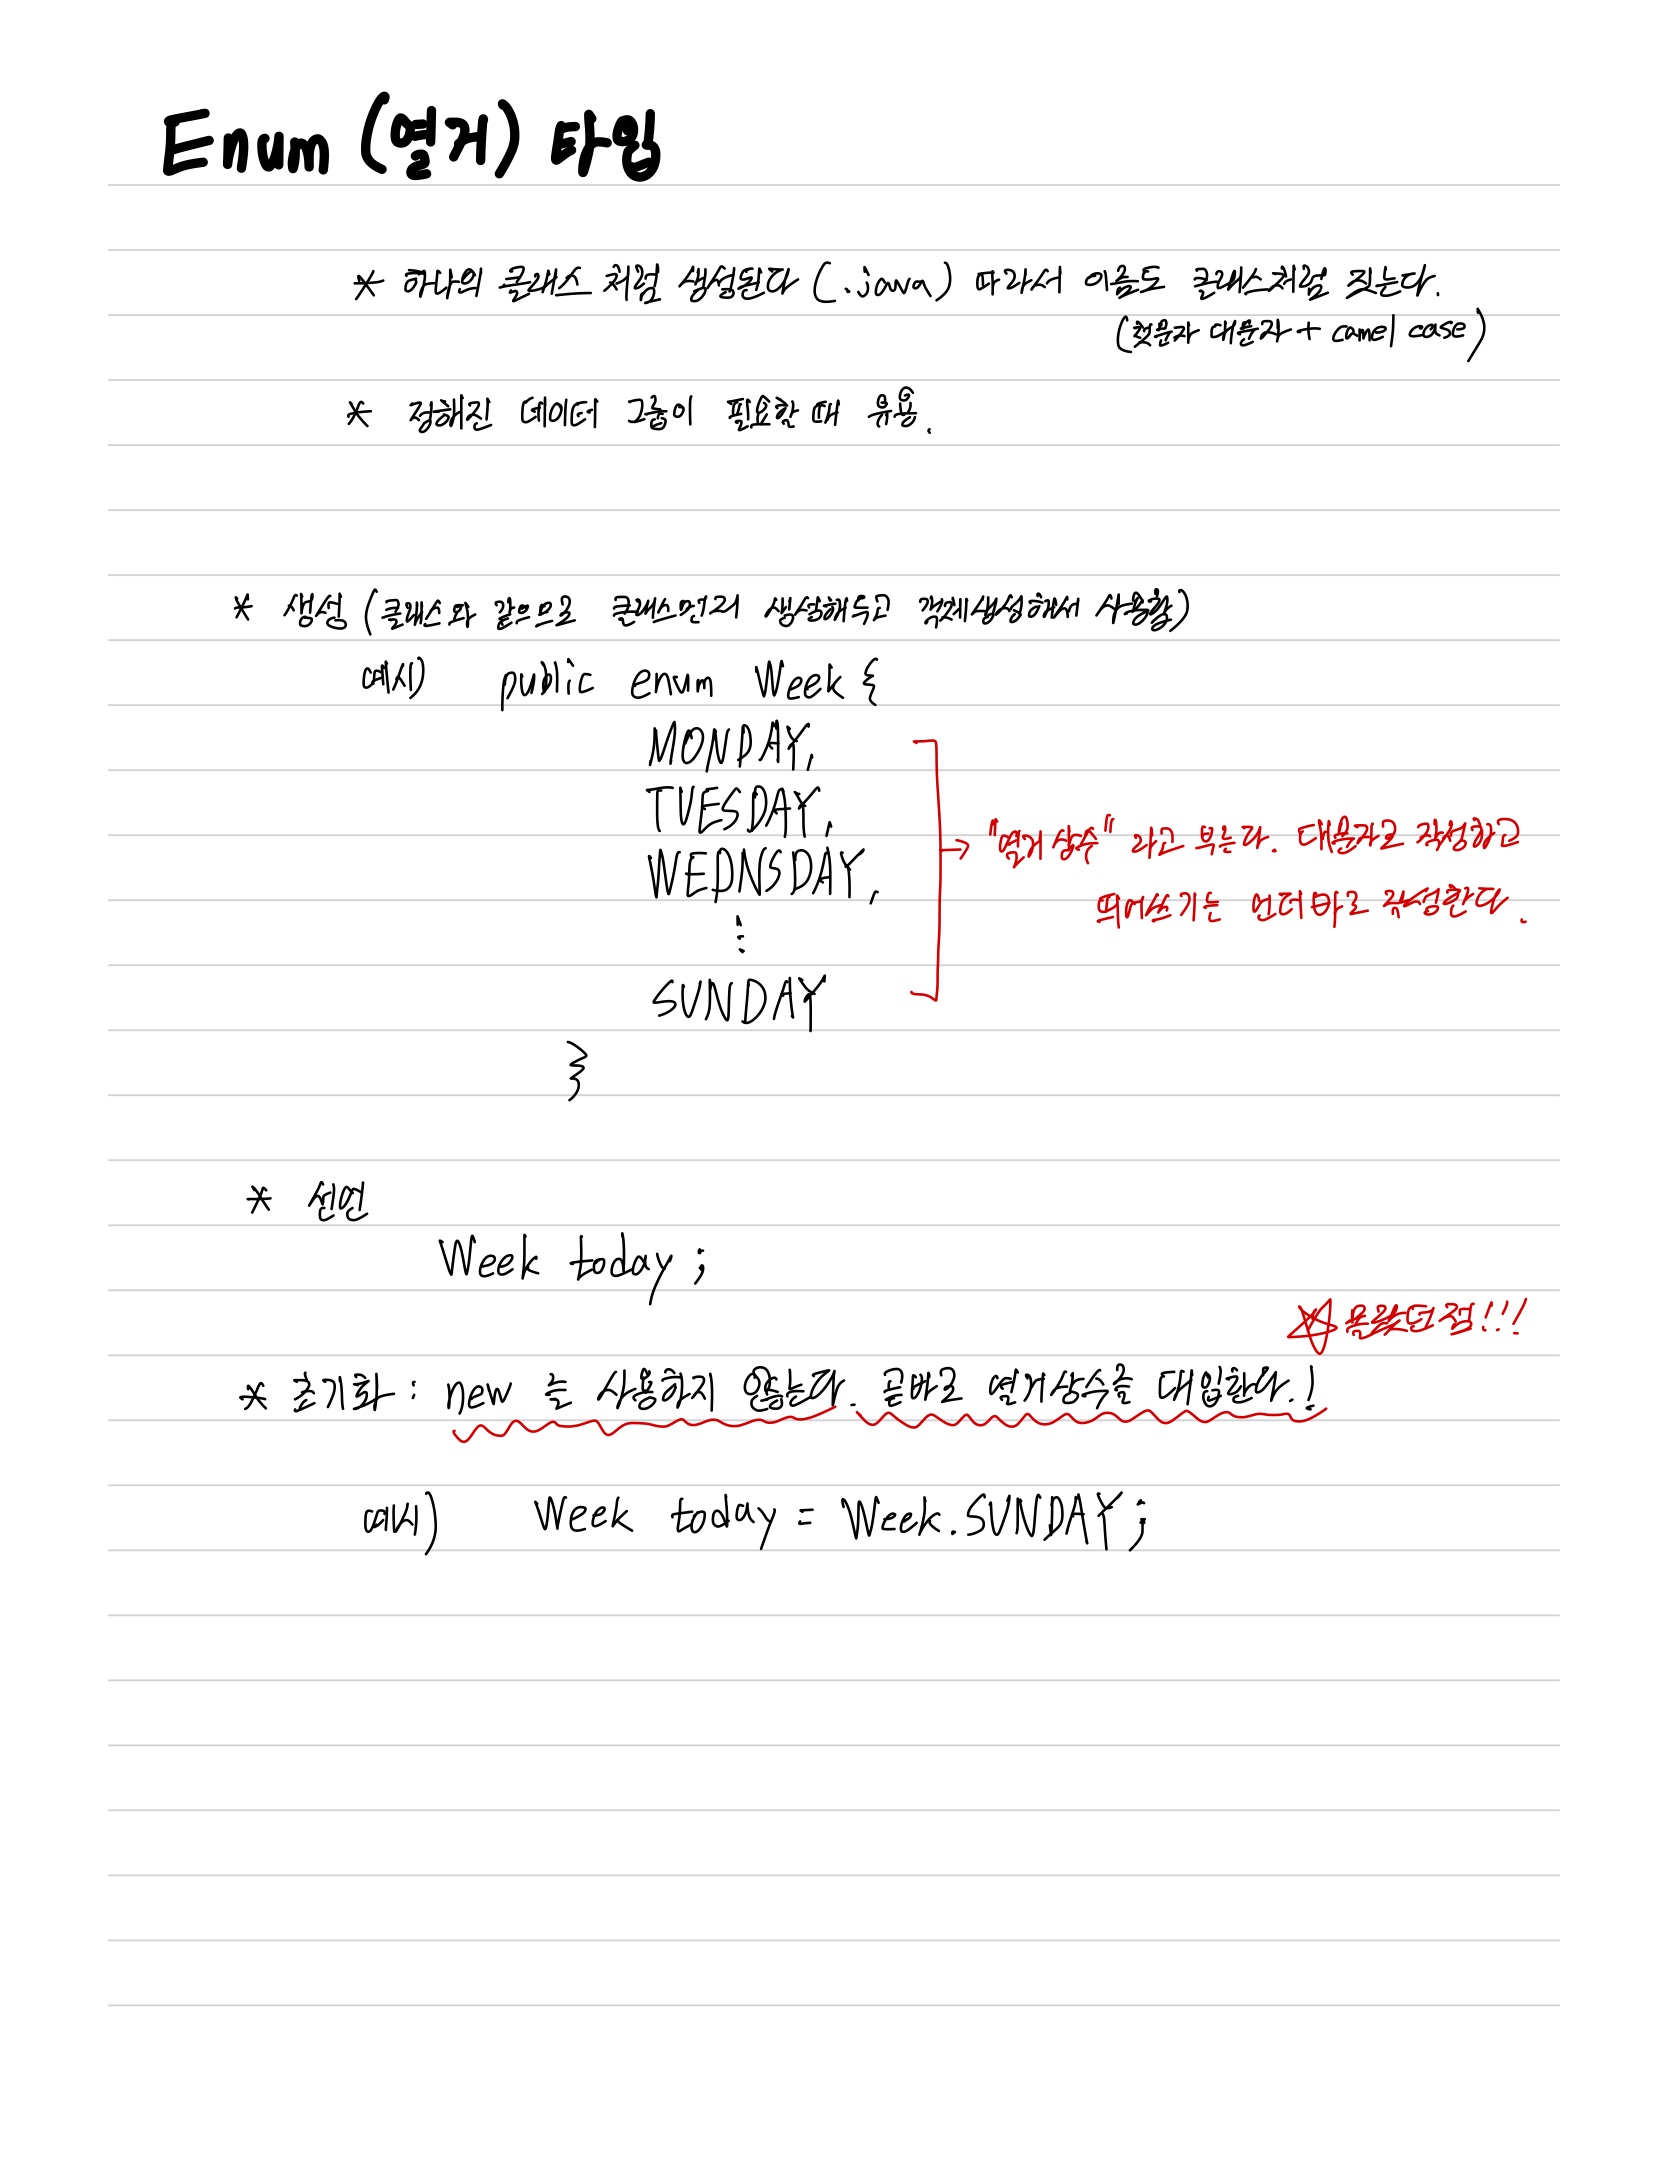 Enum (열거) 타입
* 하나의 클래스 처럼 생성된다 (.java) 따라서 이름도 클래스처럼 짓는다.
(첫문자 대문자 + camel case)
* 정해진 데이터 그룹이 필요할 때 유용.
* 생성 (클래스와 같으므로 클래스먼저 생성해두고 객체생성해서 사용함)
예시) public enum Week {
MONDAY,
TUESDAY,
WEDNSDAY,
⋮
SUNDAY
}
→ "열거 상수" 라고 부른다. 대문자로 작성하고
띄어쓰기는 언더바로 작성한다.
* 선언
Week today ;
☆ 몰랐던 점!!!
* 초기화 : new 는 사용하지 않는다. 곧바로 열거상수를 대입한다.!
예시) Week today = Week.SUNDAY ;